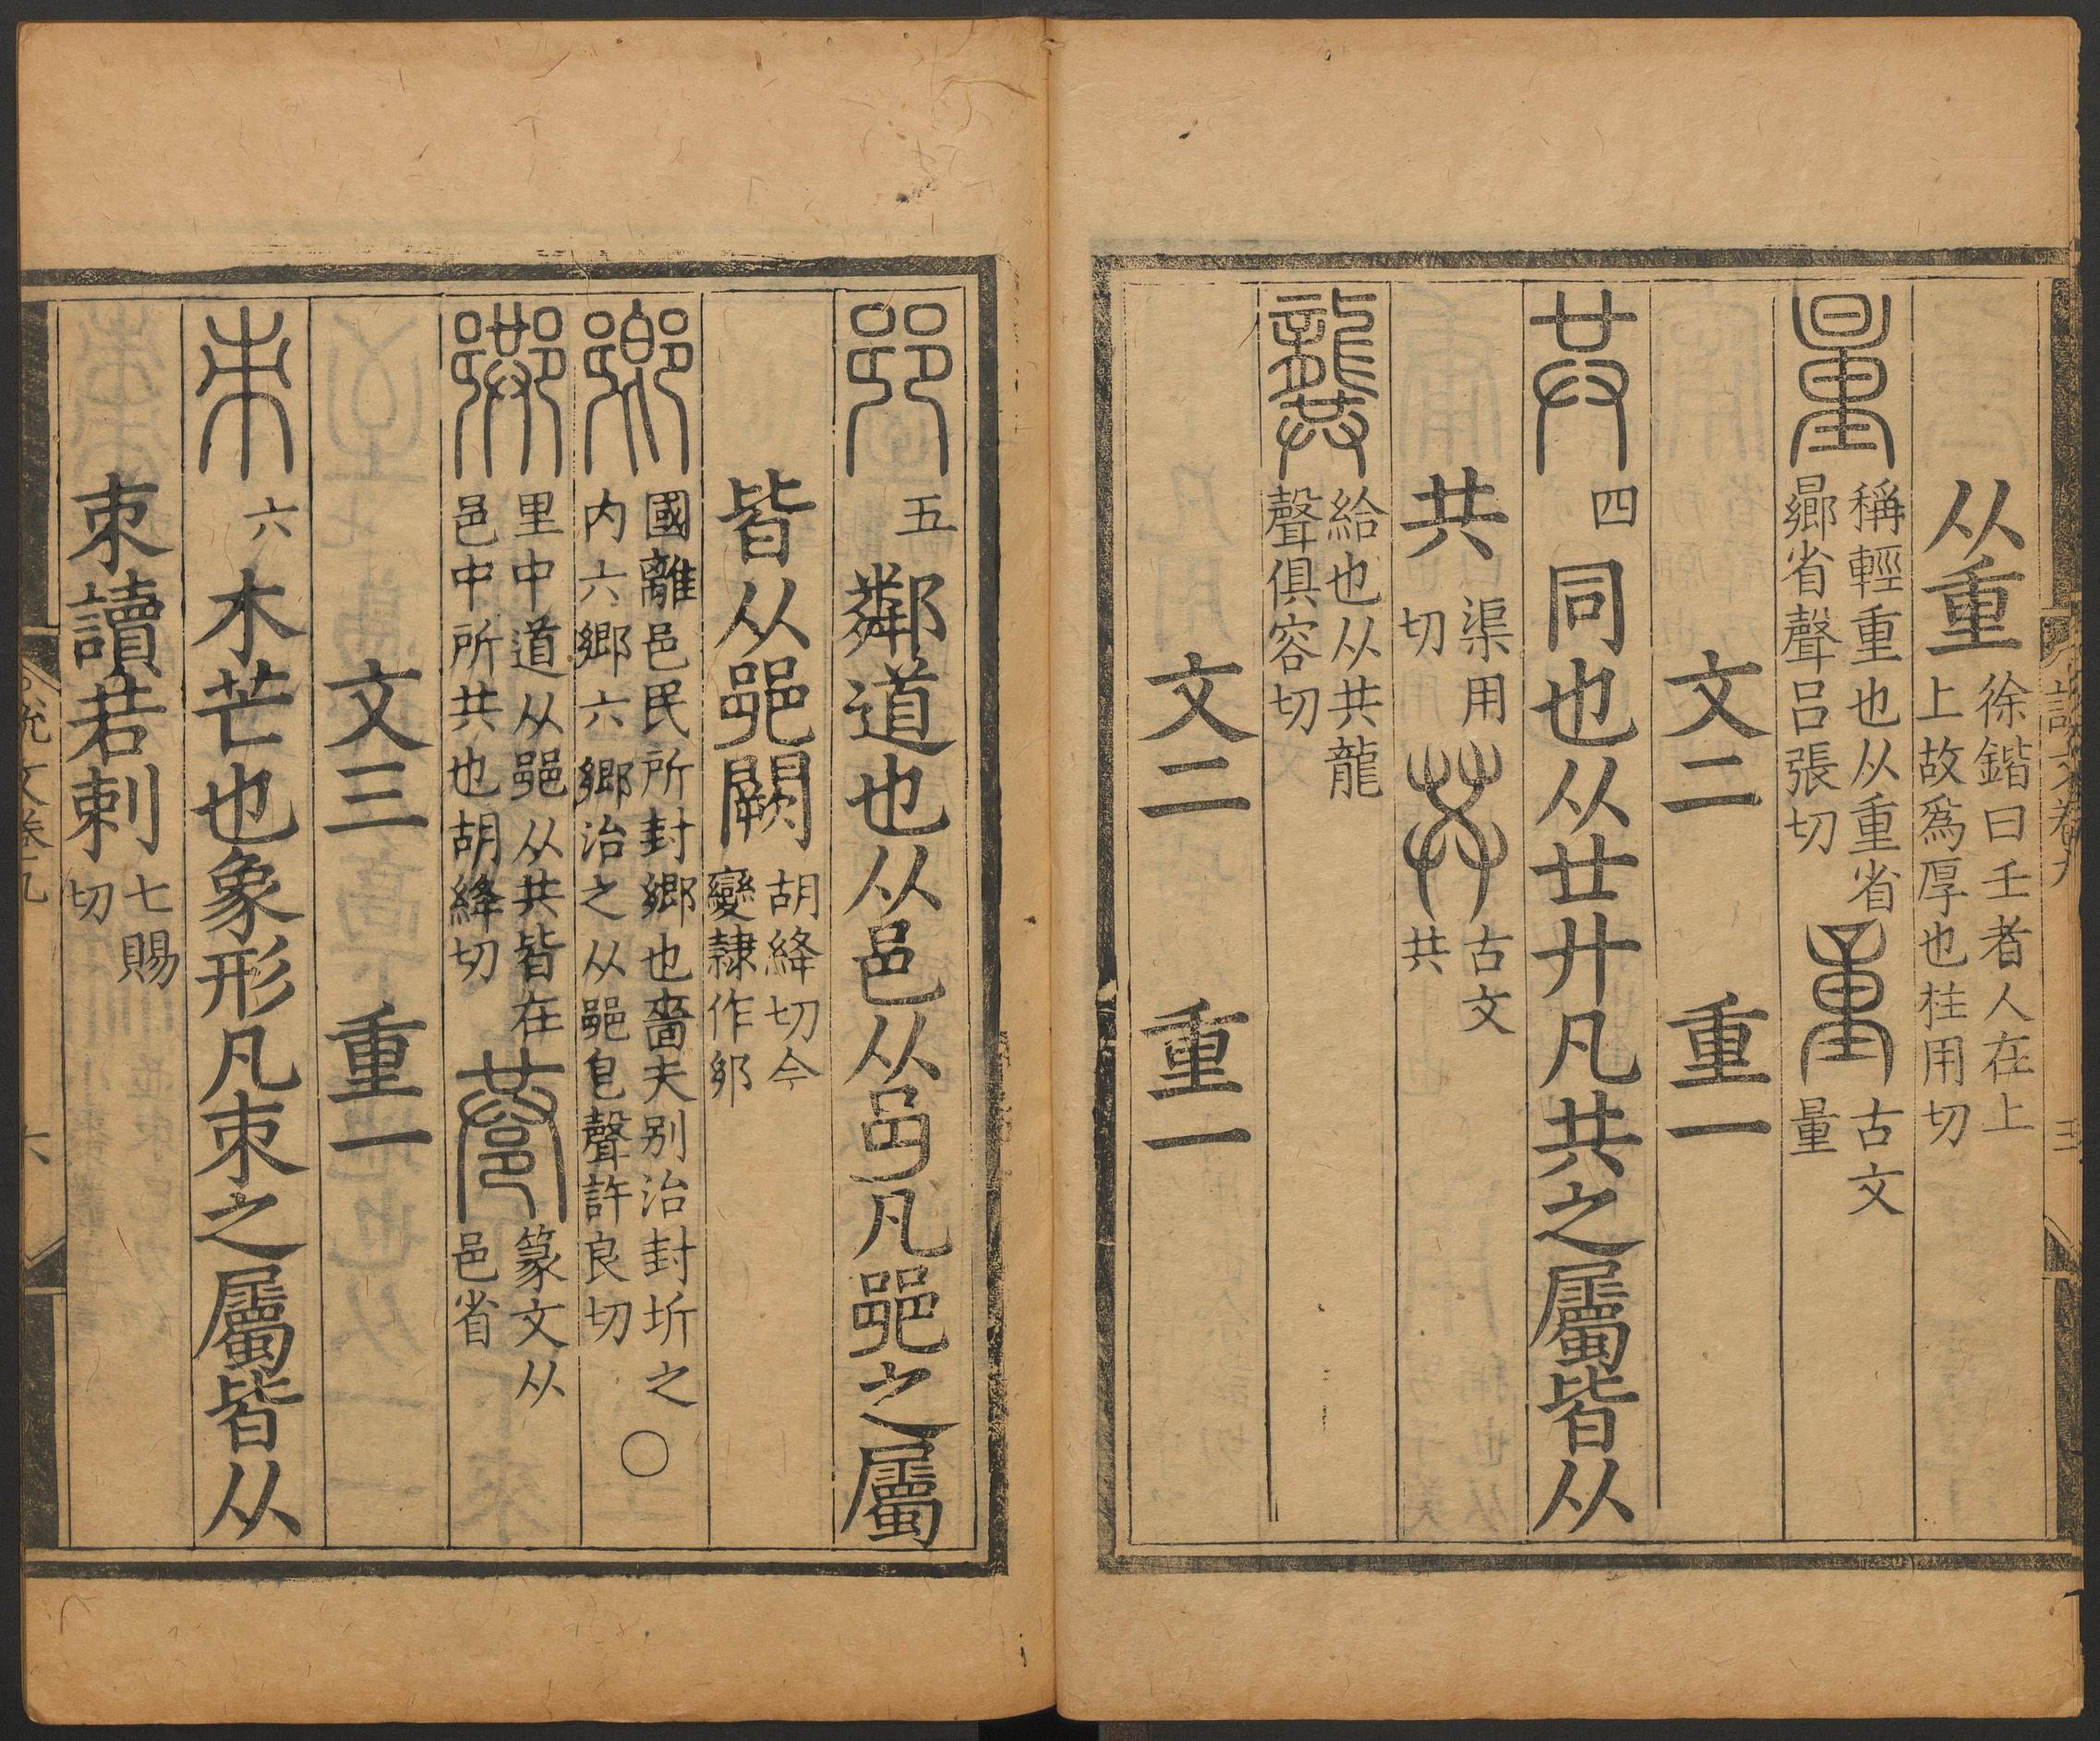 从重徐鍇曰壬者人在上上故爲厚也柱用切
量稱輕重也从重省曏省聲呂張切𨤥古文量
文二 重一
共四同也从廿廾凡共之屬皆从
共渠用切𠔏古文共
龔給也从共龍聲俱容切
文二 重一
𨛜五鄰道也从邑从𨙨凡𨛜之屬
皆从𨛜闕胡絳切今變隸作𨙵
鄉國離邑民所封鄉也嗇夫别治封圻之内六鄉六鄉治之从𨛜皀聲許良切○
𨞠里中道从𨛜从共皆在邑中所共也胡絳切巷篆文从邑省
文三 重一
朿六木芒也象形凡朿之屬皆从
朿讀若刺七賜切
説文卷九
六